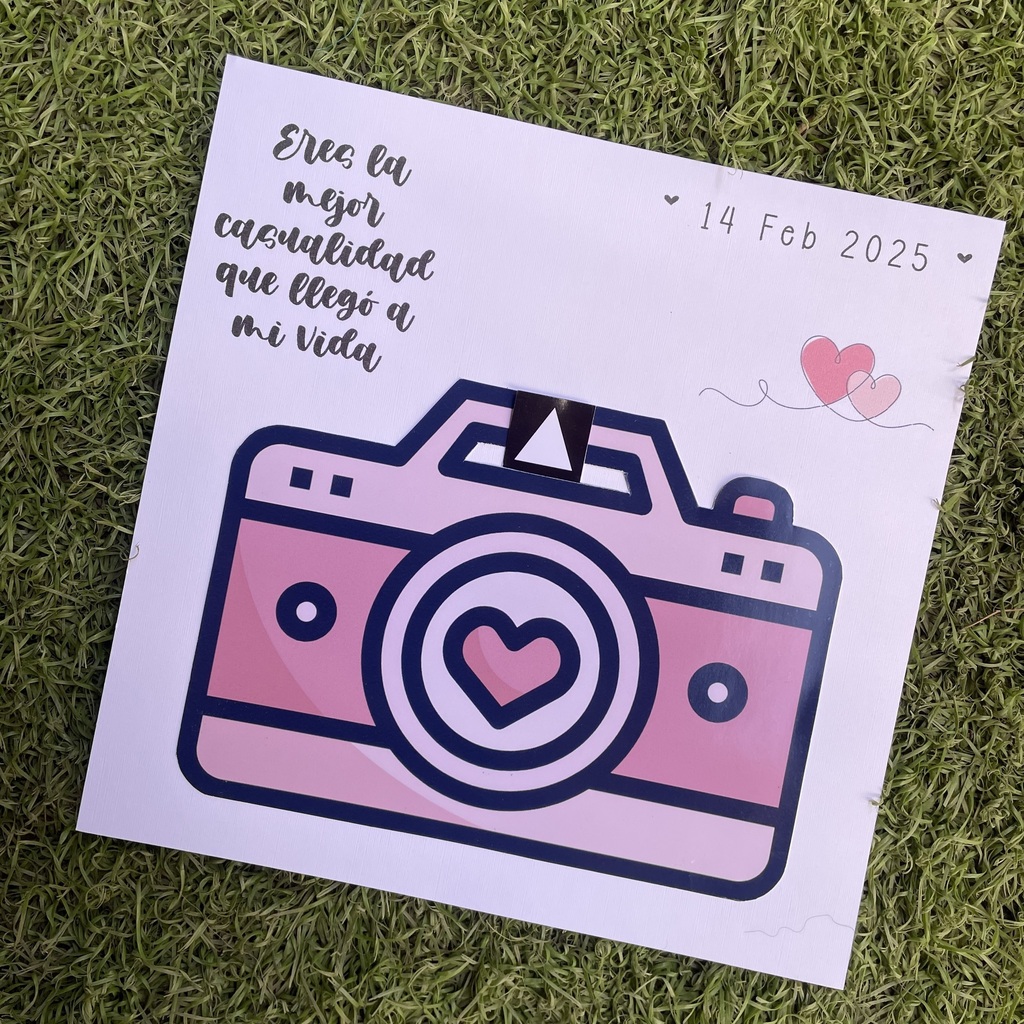 Eres la
mejor
casualidad
que llegó a
mi vida
14 Feb 2025